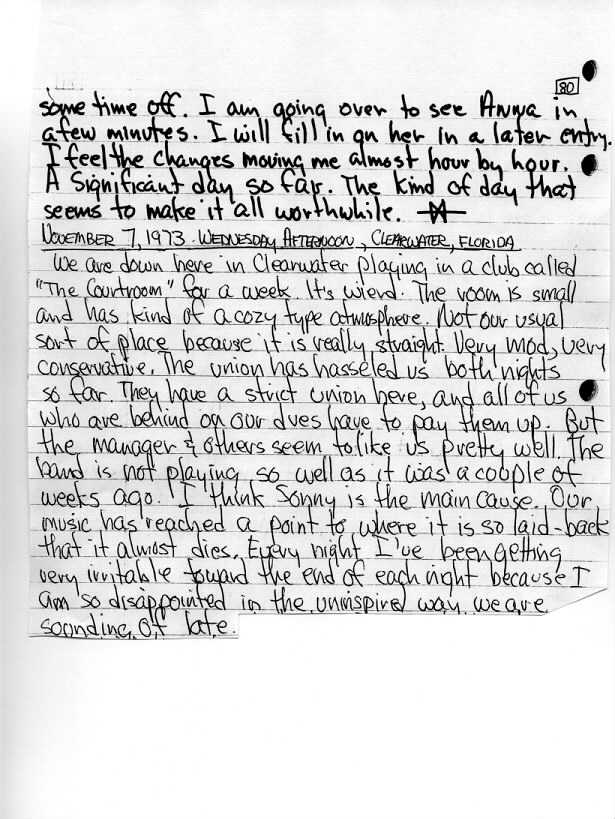 80
some time off. I am going over to see Anna in
a few minutes. I will fill in on her in a later entry.
I feel the changes moving me almost hour by hour.
A Significant day so far. The kind of day that
seems to make it all worthwhile.
November 7, 1973. Wednesday Afternoon, Clearwater, Florida
We are down here in Clearwater playing in a club called
"The Courtroom" for a week. It's wierd. The room is small
and has kind of a cozy type atmosphere. Not our usual
sort of place because it is really straight. Very mod, very
conservative. The union has hasseled us both nights
so far. They have a strict union here, and all of us
who are behind on our dues have to pay them up. But
the manager & others seem to like us pretty well. The
band is not playing so well as it was a couple of
weeks ago. I think Sonny is the main cause. Our
music has reached a point to where it is so laid-back
that it almost dies. Every night I've been getting
very irritable toward the end of each night because I
am so disappointed in the uninspired way we are
sounding of late.